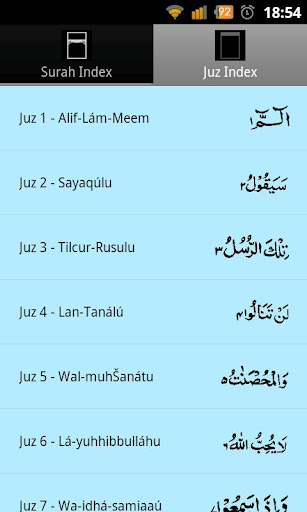 92 18:54
Surah Index Juz Index
Juz 1 - Alif-Lám-Meem الٓمّٓ ١
Juz 2 - Sayaqúlu سَيَقُوْلُ ٢
Juz 3 - Tilcur-Rusulu تِلْكَ الرُّسُلُ ٣
Juz 4 - Lan-Tanálú لَنْ تَنَالُوا ٤
Juz 5 - Wal-muhŠanátu وَالْمُحْصَنٰتُ ٥
Juz 6 - Lá-yuhhibbulláhu لَا يُحِبُّ اللهُ ٦
Juz 7 - Wa-idhá-samiaaú وَاِذَا سَمِعُوْا ٧